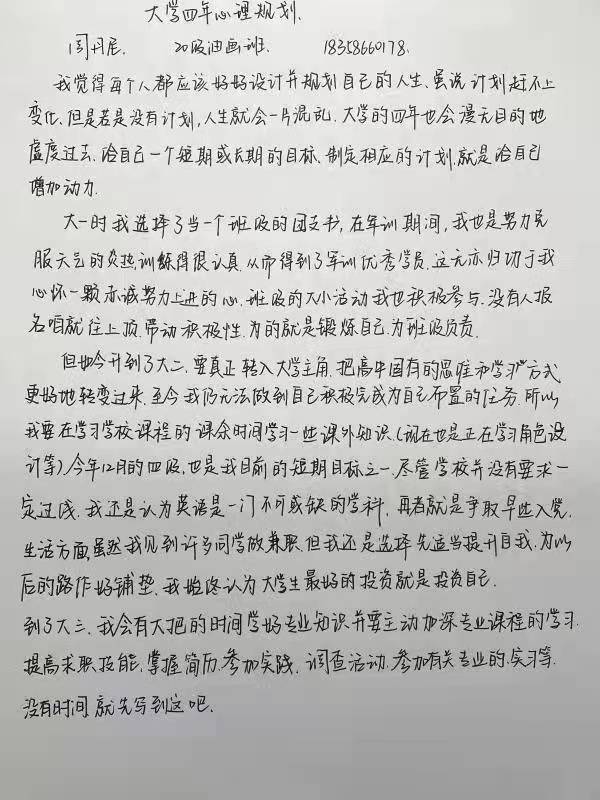 大学四年心理规划.
周丹尼. 20级油画班. 18358660178.
我觉得每个人都应该好好设计并规划自己的人生、虽说计划赶不上
变化、但是若是没有计划,人生就会一片混乱、大学的四年也会漫无目的地
虚度过去、给自己一个短期或长期的目标、制定相应的计划、就是给自己
增加动力.
大一时我选择了当一个班级的团支书,在军训期间,我也是努力克
服天气的炎热,训练得很认真、从而得到了军训优秀学员、这无亦归功于我
心怀一颗赤诚努力上进的心、班级的大小活动我也积极参与、没有人报
名咱就往上顶、带动积极性、为的就是锻炼自己、为班级负责.
但如今升到了大二、要真正转入大学主角、把高中固有的思维和学习方式
更好地转变过来、至今我仍无法做到自己积极完成为自己布置的任务、所以
我要在学习学校课程的课余时间学习一些课外知识、(现在也是正在学习角色设
计等)、今年12月的四级,也是我目前的短期目标之一、尽管学校并没有要求一
定过线、我还是认为英语是一门不可或缺的学科、再者就是争取早些入党、
生活方面,虽然我见到许多同学做兼职、但我还是选择先适当提升自我、为以
后的路作好铺垫、我始终认为大学生最好的投资就是投资自己.
到了大三、我会有大把的时间学好专业知识并要主动加深专业课程的学习、
提高求职技能、掌握简历、参加实践、调查活动、参加有关专业的实习等.
没有时间就先写到这吧.